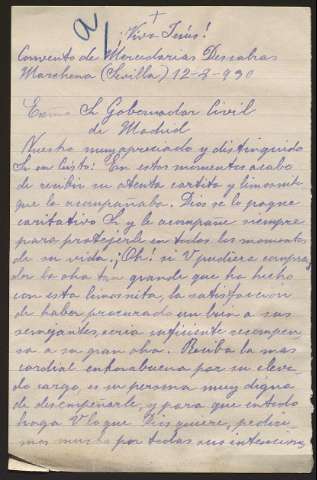 a)
+
¡Viva Jesús!
Convento de Mercedarias Descalzas
Marchena (Sevilla) 12-8-930
Exmo Sr Gobernador Civil
de Madrid
Nuestro muy apreciado y distinguido
Sr en Cristo: En estos momentos acabo
de recibir su atenta cartita y limosnita
que la acompañaba. Dios se lo pague
caritativo Sr y le acompañe siempre
para protejerle en todos los momentos
de su vida. ¡Oh! si V pudiera compren
der la obra tan grande que ha hecho
con esta limosnita, la satisfaccion
de haber procurado un bien a sus
semejantes, seria suficiente recompen
sa a su gran obra. Reciba la mas
cordial enhorabuena por su eleva
do cargo, es su persona muy digna
de desempeñarle, y para que en todo
haga V lo que Dios quiere, pedire
mos mucho por todas sus intenciones,